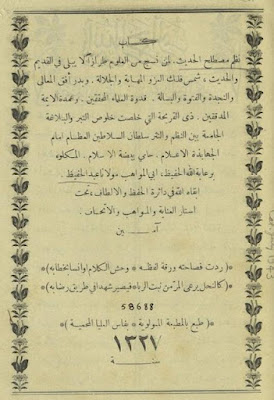 كتاب
نظم مصطلح الحديث. لمن نسج من العلوم طرازا لا يبلى في القديم
والحديث، شمس فلك العز والمهابة والجلالة. وبدر أفق المعالى
والنجدة والفتوة والبسالة. قدوة العلماء المحققين. وعمدة الايمة
المدققين. ذى القريحة التى خاصت خلوص التبر والبلاغة
الجامعة بين النظم والنثر سلطان السلاطين العظام امام
الجهابذة الاعلام. حامى بيضة الاسلام. المكلوء
برعاية الله الحفيظ. ابى المواهب مولانا عبد الحفيظ.
ابقاه الله فى دائرة الحفظ والالطاف، تحت
استار العناية والمواهب والاتحاف.
آمين
*( ردت فصاحته ورقة لفظه * وحش الكلام اوانسا بخطابه )*
*( كالنحل يرعى المر من نبت الربا * فيصير شهدا فى طريق رضابه )*
58688
*( طبع بالمطبعة المولوية * بفاس العليا المحمية )*
١٣٢٧
سنة